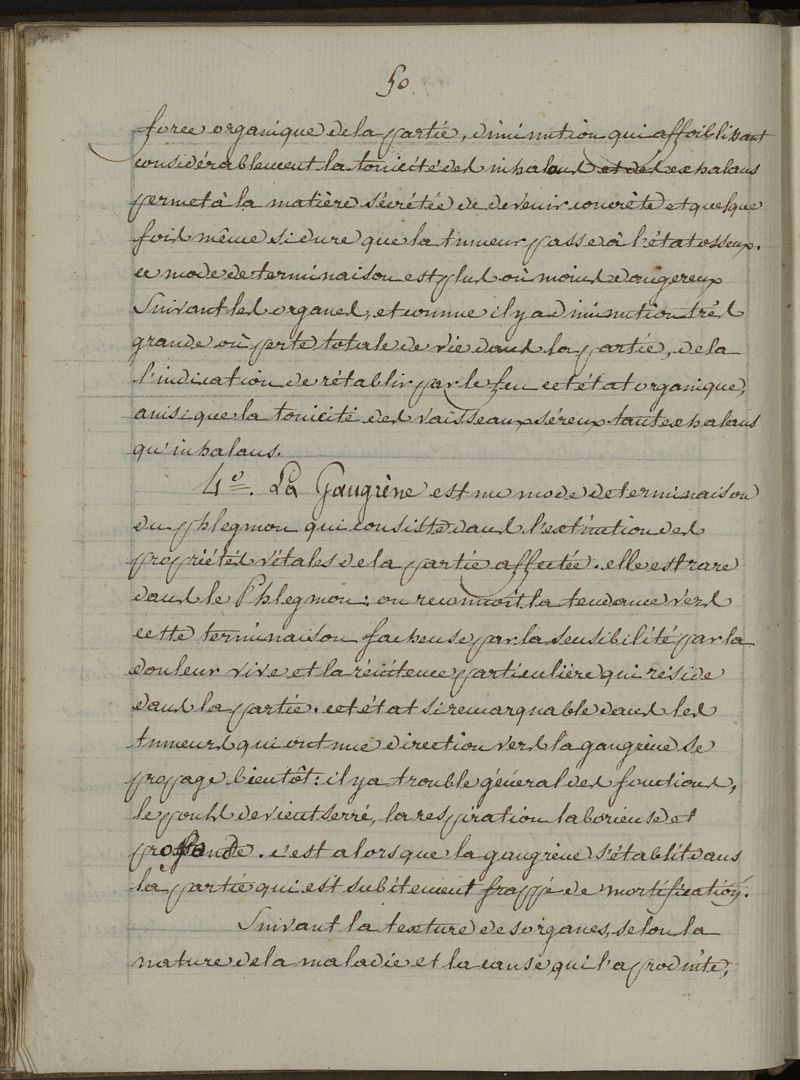 50
force organique de la partie, diminution qui affoiblissant
considérablement la tonicité des inhalans et des exhalans
permet à la matière sécrétée de devenir concrète et quelque
fois même si dure que la tumeur passe à l'état osseux.
ce mode de terminaison est plus où moins dangereux
Suivant les organes, et comme il y a diminution très
grande où perte totale de vie dans la partie, de la
l'indication de rétablir par le feu cet état organique,
ainsi que la tonicité des vaisseaux séreux tant exhalans
qu'inhalans.
4º. La Gangrène est un mode de terminaison
du phlegmon qui consiste dans l'extinction des
propriétés vitales de la partie affectée. elle est rare
dans le Phlegmon: on reconnoît la tendance vers
cette terminaison fâcheuse par la sensibilité par la
douleur vive et la rénitence particulière qui réside
dans la partie. cet état si remarquable dans les
tumeurs qui ont une direction vers la gangrène se
propage bientôt: il y a trouble général des fonctions,
le pouls devient serré, la respiration laborieuse et
profonde. c'est alors que la gangrène s'établit dans
la partie qui est subitement frappé de mortification.
Suivant la texture des organes, selon la
nature de la maladie et la cause qui l'a produite,